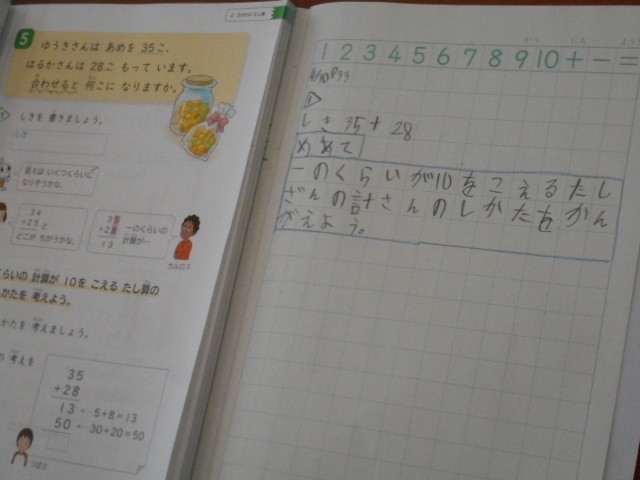 2 たし算とひき算
5
ゆうきさんは あめを 35こ、
はるかさんは 28こ もって います。
合わせると 何こに なりますか。
しきを 書きましょう。
しき
答えは いくつくらいに
なりそうかな。
34
+23 と
どこが ちがうかな。
35
+28
13
一のくらいの
計算が…
カルロス
くらいの 計算が 10を こえる たし算の
かたを 考えよう。
かたを 考えましょう。
の 考えを
35
+28
13 … 5+8=13
50 … 30+20=50
つばさ
1 2 3 4 5 6 7 8 9 10 + − =
しき 35+28
めあて
一のくらいが10をこえるたし
ざんの計さんのしかたをかん
がえよう。